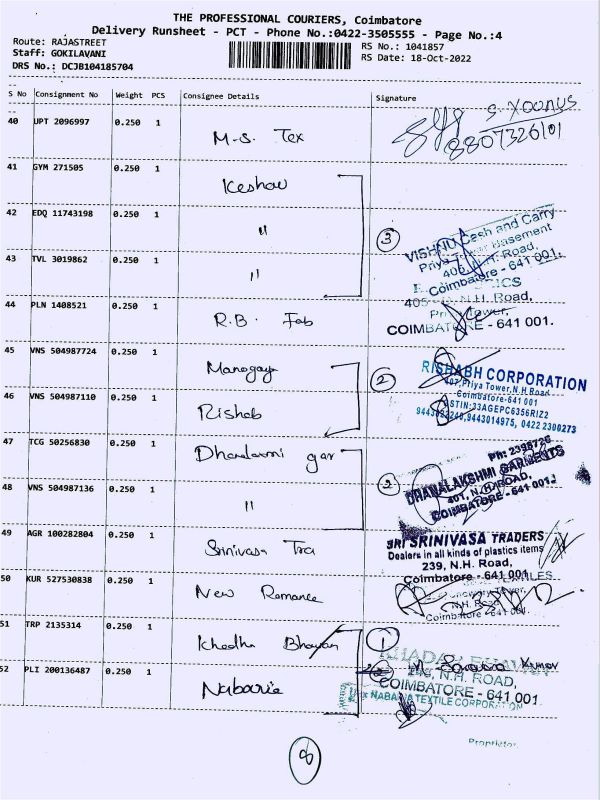 THE PROFESSIONAL COURIERS, Coimbatore
Delivery Runsheet - PCT - Phone No.:0422-3505555 - Page No.:4
Route: RAJASTREET
Staff: GOKILAVANI
DRS No.: DCJB104185704
RS No.: 1041857
RS Date: 18-Oct-2022
S No Consignment No Weight PCS Consignee Details Signature
40 UPT 2096997 0.250 1 M.S. Tex
S. YOONUS
8807326101
41 GYM 271505 0.250 1 Keshav
42 EDQ 11743198 0.250 1 "
3
VISHNU Cash and Carry
Priya Tower Basement
N.H. Road,
Coimbatore - 641 001.
43 TVL 3019862 0.250 1 "
44 PLN 1408521 0.250 1 R.B. Fab
405 N.H. Road,
Tower,
COIMBATORE - 641 001.
45 VNS 504987724 0.250 1 Manogay
2
RISHABH CORPORATION
407, Priya Tower, N.H Road
Coimbatore-641 001
GSTIN:33AGEPC6356R1Z2
9443014975, 0422 2300273
46 VNS 504987110 0.250 1 Rishab
47 TCG 50256830 0.250 1 Dhanalaxmi gar
2
Ph: 2398726
DHANALAKSHMI GARMENTS
401, N.H. ROAD,
COIMBATORE - 641 001.
48 VNS 504987136 0.250 1 "
49 AGR 100282804 0.250 1 Srinivasa Tra
SRI SRINIVASA TRADERS
Dealers in all kinds of plastics items
239, N.H. Road,
Coimbatore - 641 001
50 KUR 527530838 0.250 1 New Romance
Tower,
N.H. Road
Coimbatore - 641 001.
51 TRP 2135314 0.250 1 Khadha Bhavan
1
N.H. ROAD,
COIMBATORE - 641 001
52 PLI 200136487 0.250 1 Nabaria
TEXTILE CORPORATION
Proprietor
8